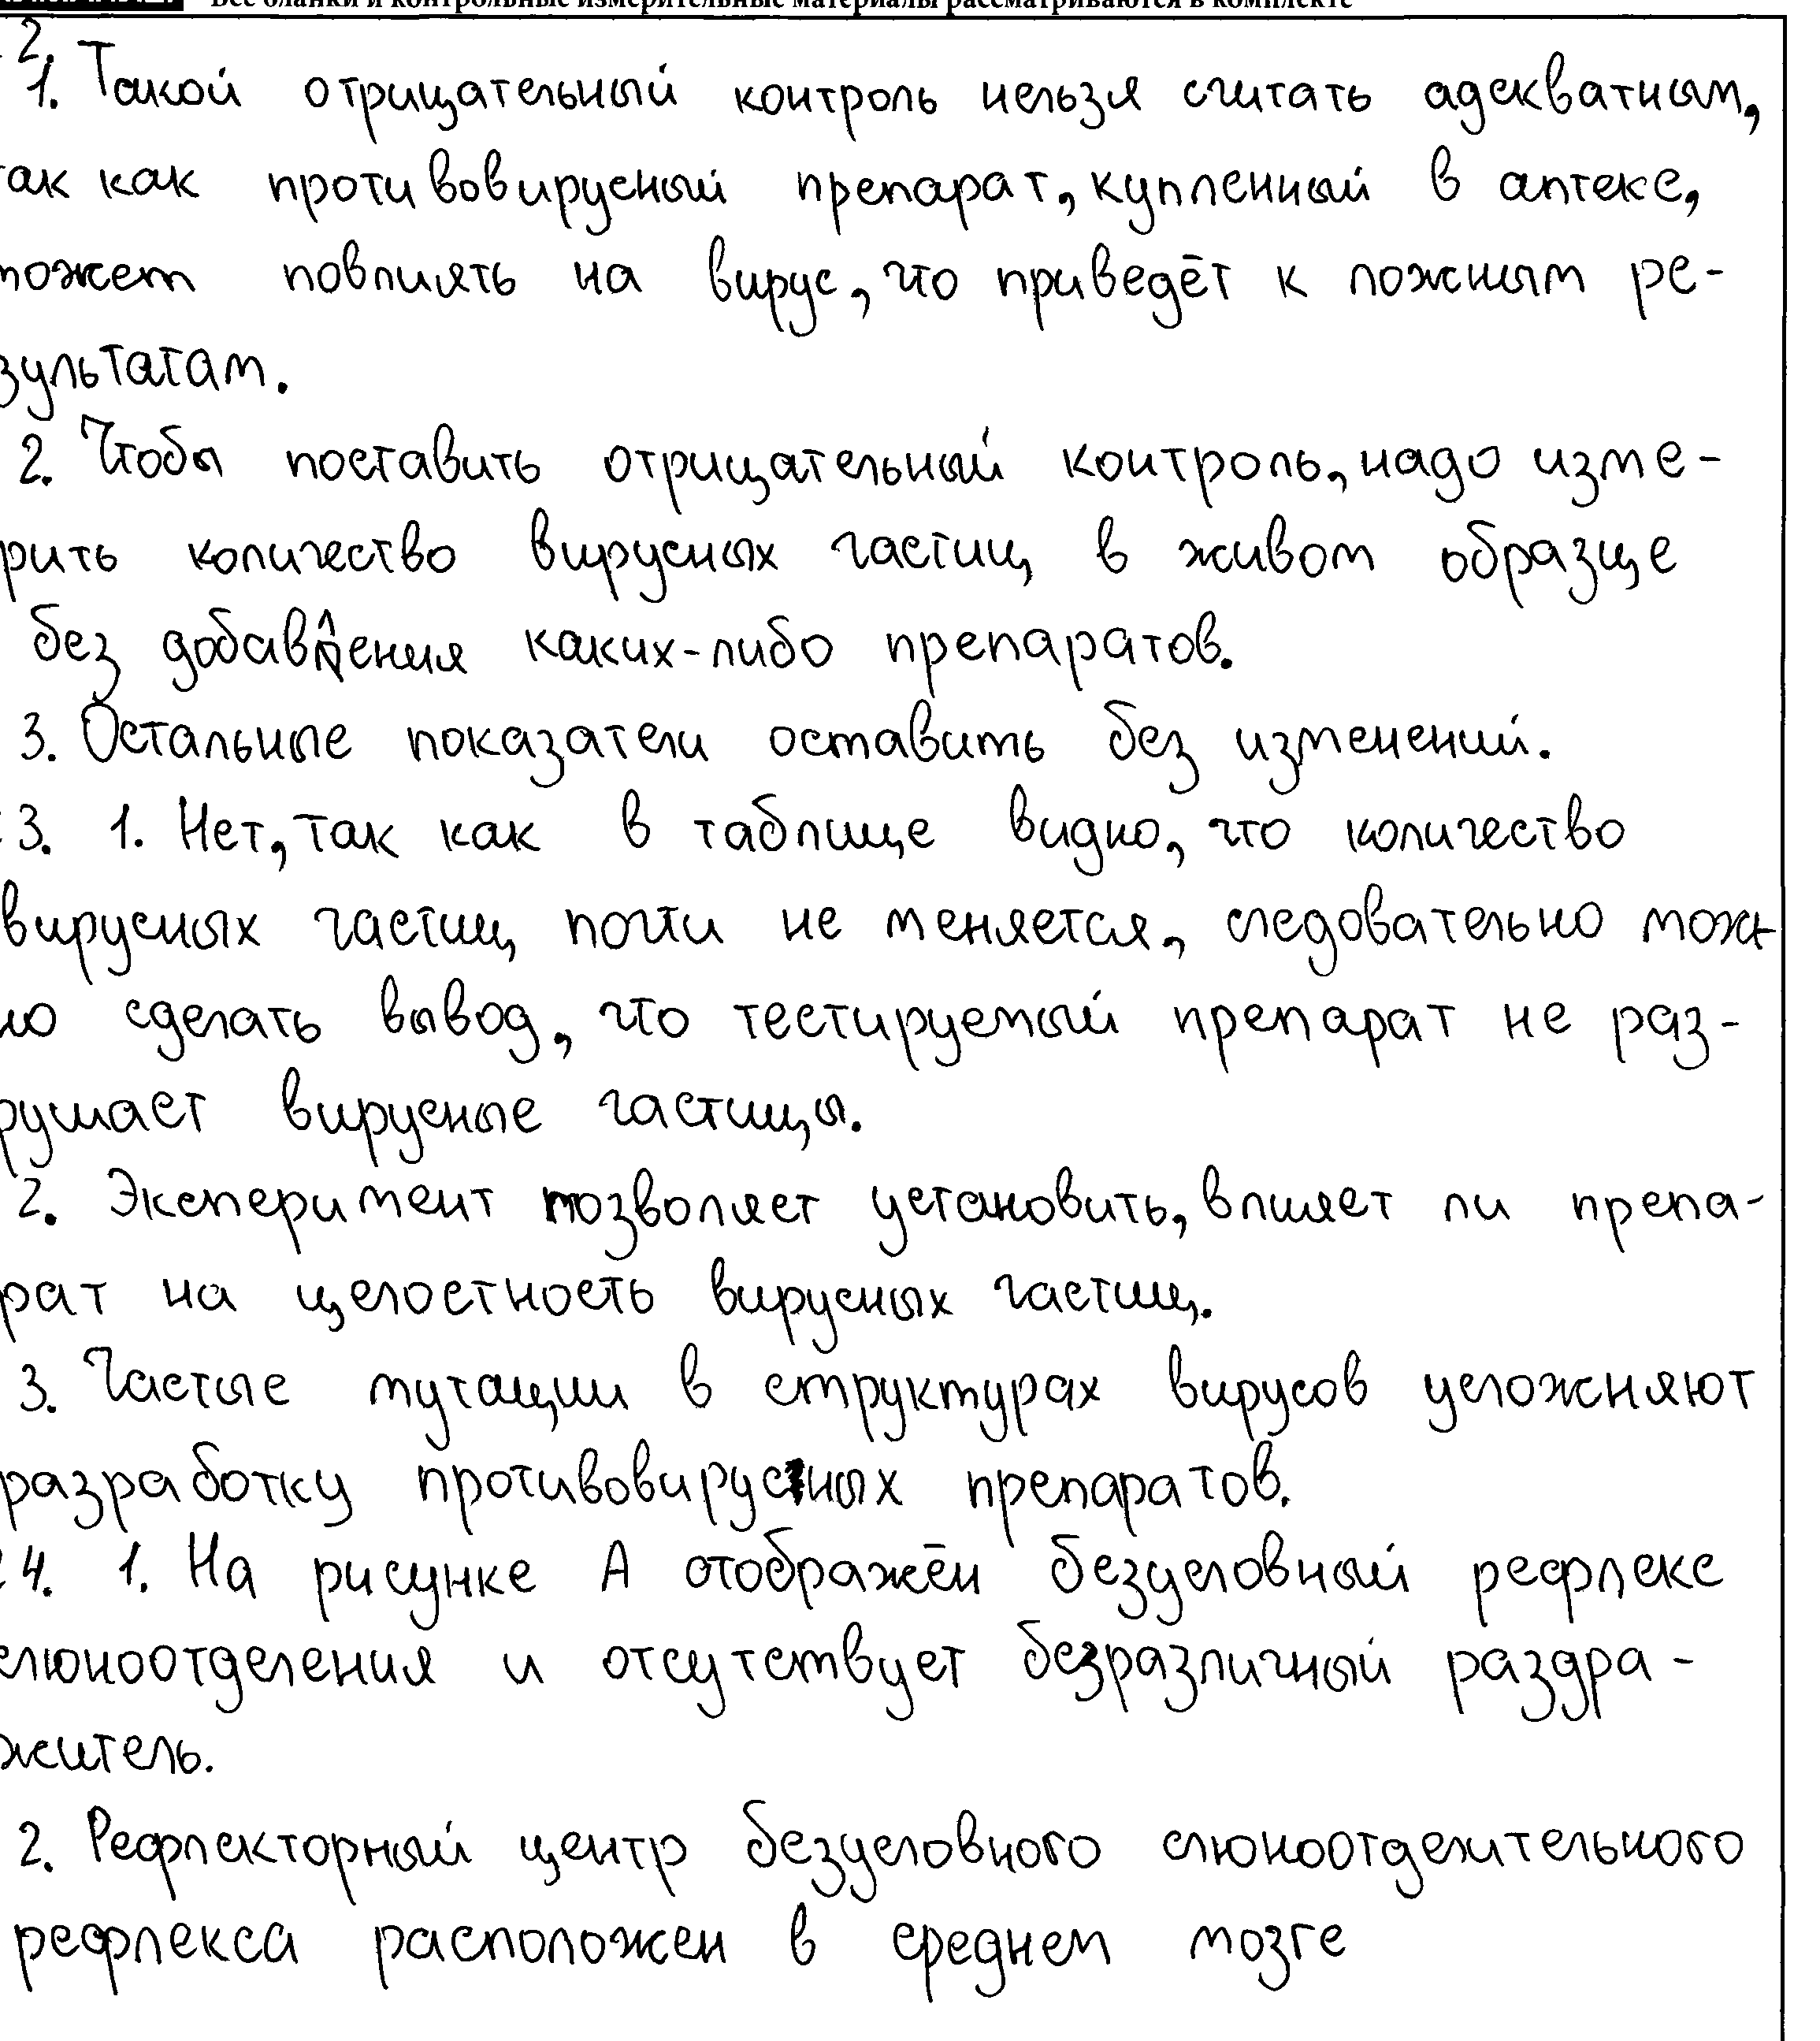 Все бланки и контрольные измерительные материалы рассматриваются в комплекте
2.
1. Такой отрицательный контроль нельзя считать адекватным,
так как противовирусный препарат, купленный в аптеке,
может повлиять на вирус, что приведёт к ложным ре-
зультатам.
2. Чтобы поставить отрицательный контроль, надо изме-
рить количество вирусных частиц в живом образце
без добавления каких-либо препаратов.
3. Остальные показатели оставить без изменений.
3. 1. Нет, так как в таблице видно, что количество
вирусных частиц почти не меняется, следовательно мож-
но сделать вывод, что тестируемый препарат не раз-
рушает вирусные частицы.
2. Эксперимент позволяет установить, влияет ли препа-
рат на целостность вирусных частиц.
3. Частые мутации в структурах вирусов усложняют
разработку противовирусных препаратов.
24. 1. На рисунке А отображён безусловный рефлекс
слюноотделения и отсутствует безразличный раздра-
житель.
2. Рефлекторный центр безусловного слюноотделительного
рефлекса расположен в среднем мозге